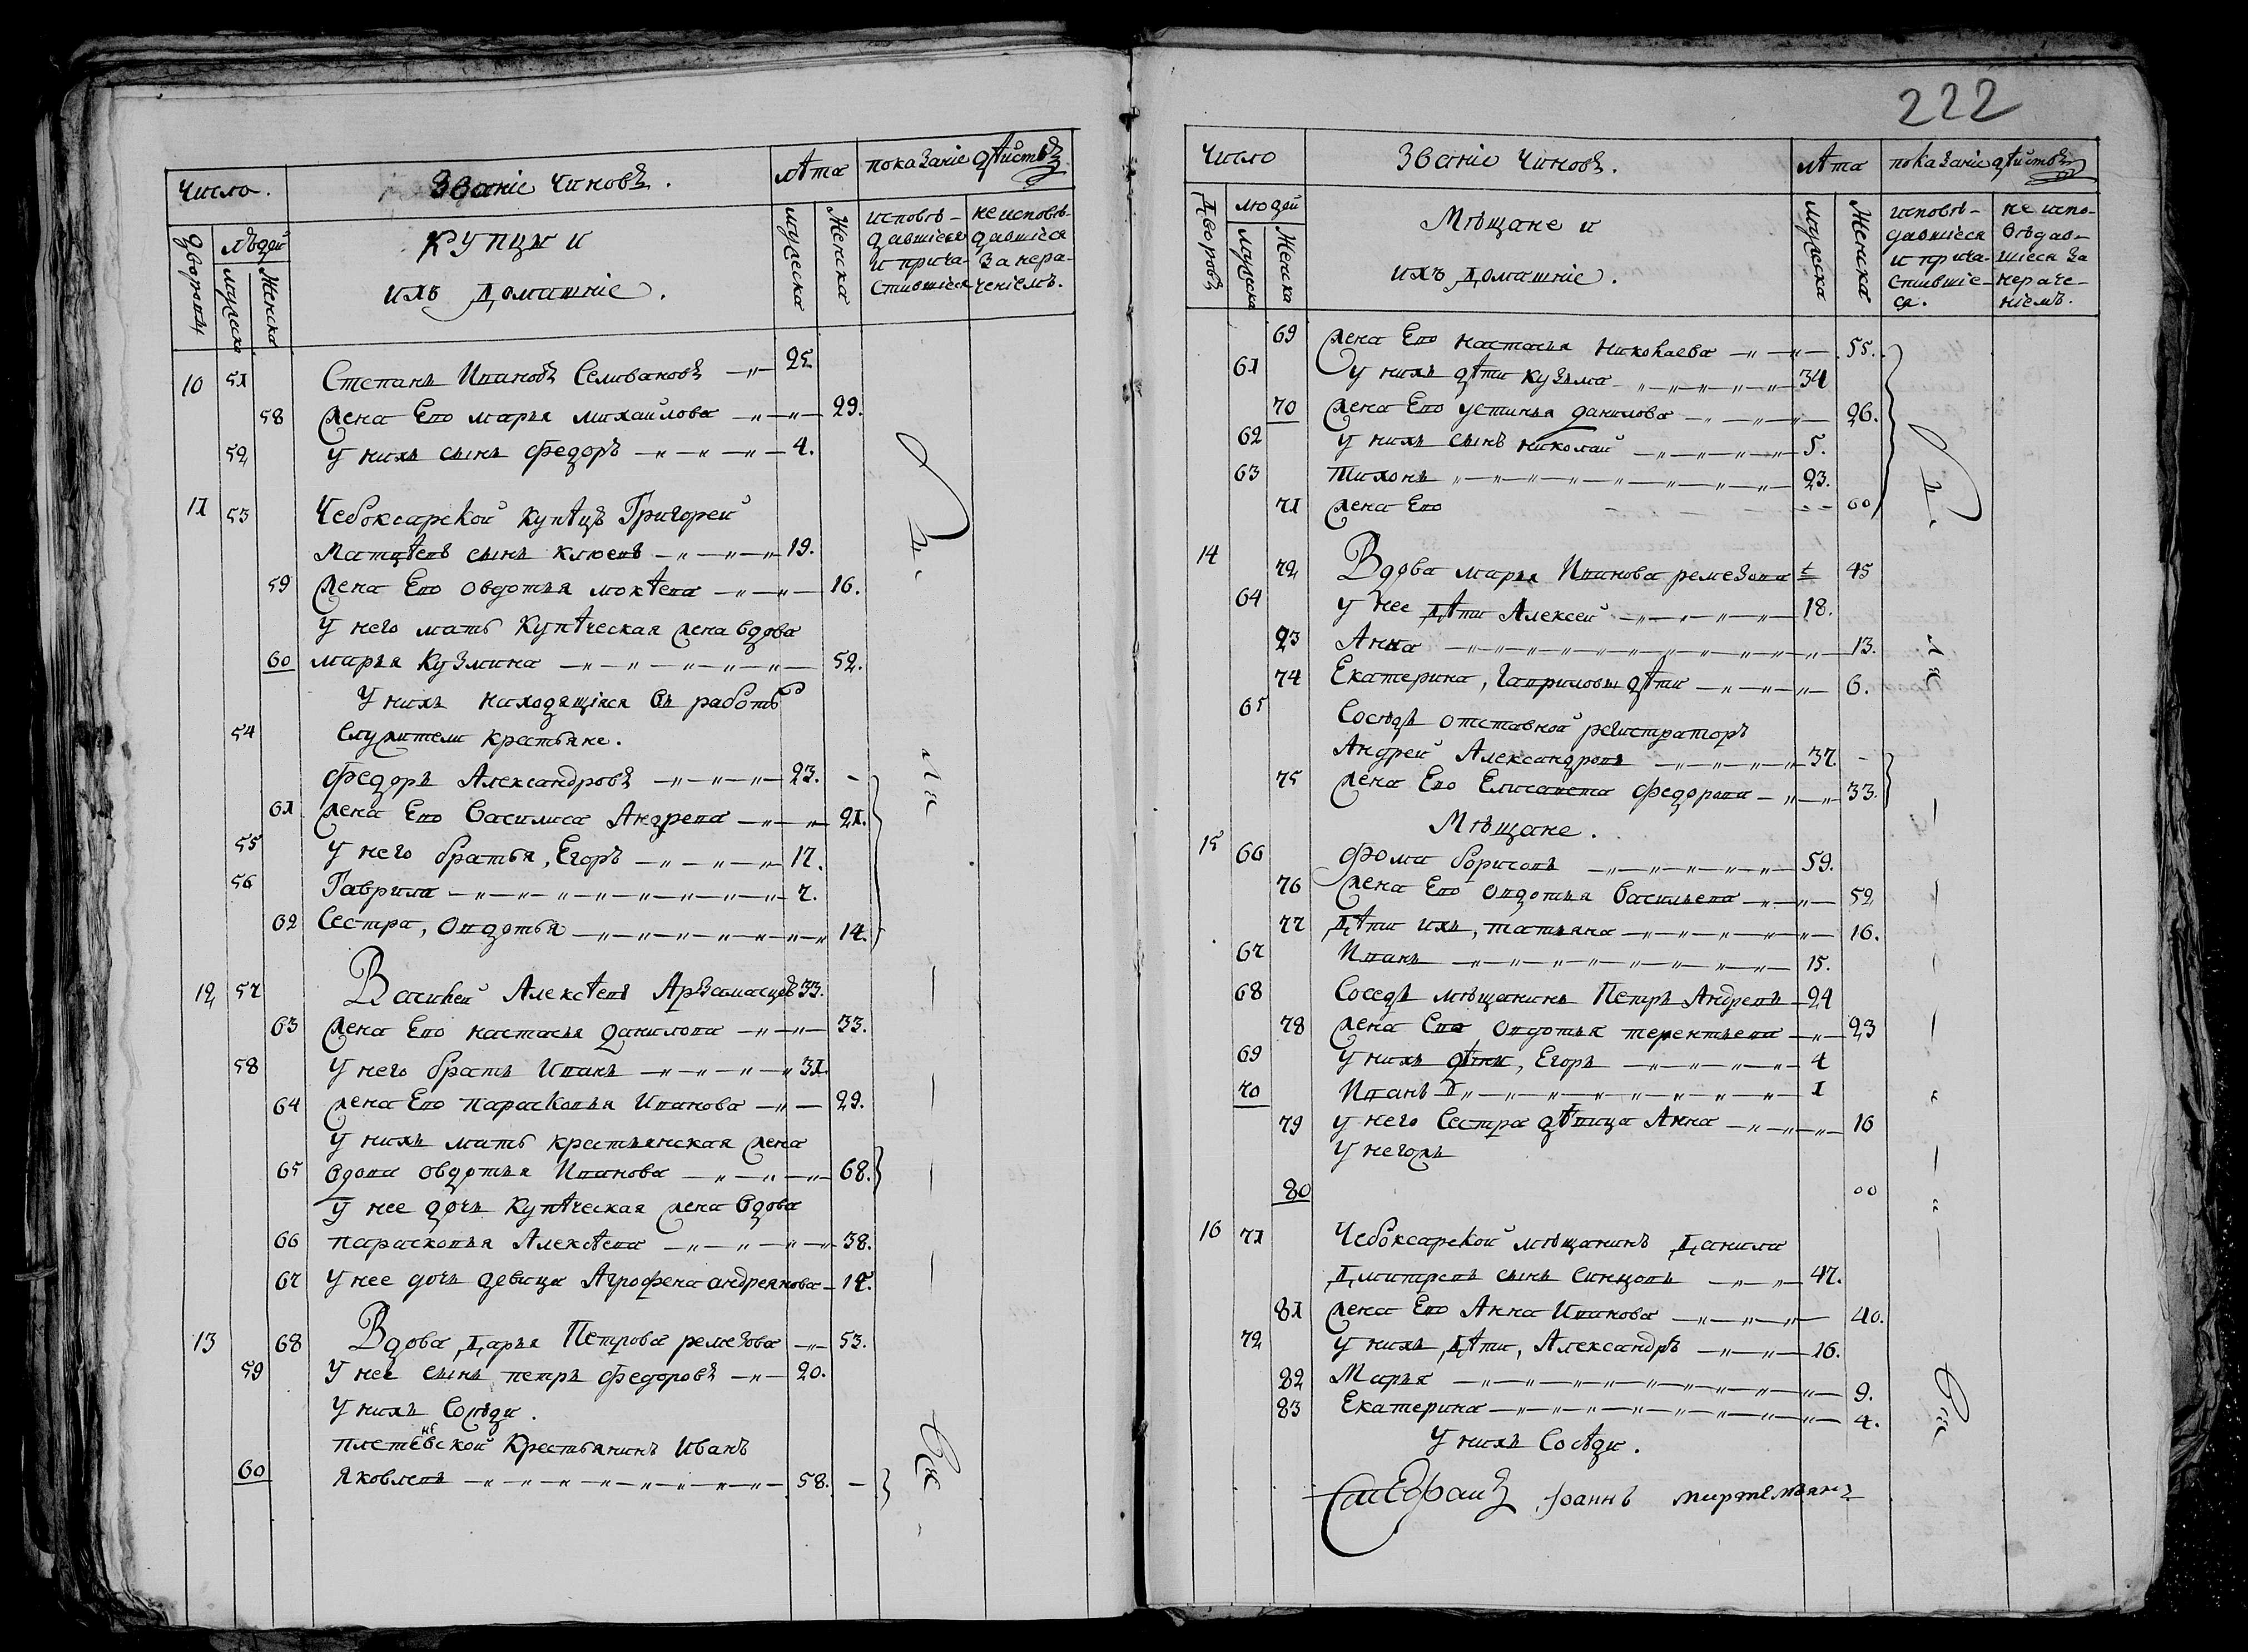 Число. Званіе Чиновъ. лѣта показаніе дѣйствъ
дворовъ людей мужеска Женска
купцы и
ихъ домашніе.
мужеска Женска
исповѣ- не исповѣ-
давшіеся давшіеся
и прича- за нера-
стившіеся ченіемъ.
10 51 Степанъ Ивановъ Селивановъ 25.
58 жена Его марья михаилова 29.
52 у нихъ сынъ Федоръ 4.
11 53 Чебоксарской купѣцъ Григореи
Матѵѣевъ сынъ клюевъ 19.
59 жена Его овдотья мокѣева 16.
у него мать купѣческая жена вдова
60 марья кузмина 52.
у нихъ находящіяся въ работѣ
54 служители крестьяне.
Федоръ Александровъ 23. -
61 жена Его василиса Андрева 21.
55 у него братья, Егоръ 17.
56 Гаврила 7.
62 Сестра, Овдотья 14.
12 57 Василей Алексѣевъ Арзамасцовъ 33.
63 жена Его настасья данилова 33.
58 у него братъ Иванъ 31.
64 жена Его парасковья Иванова 29.
у нихъ мать крестьянская жена
65 вдова овдотья Иванова 68.
у нее дочь купѣческая жена вдова
66 парасковья Алексѣева 38.
67 у нее дочь девица Агрофена андреянова 17.
13 68 Вдова Дарья Петрова ремезова 53.
59 у нее сынъ петръ федоровъ 20.
у нихъ Сосѣди.
не
плетевской Крестьянинъ Иванъ
60 яковлевъ 58. -
222
Число Званіе Чиновъ. лѣта показаніе дѣйствъ
Дворовъ людей мужеска Женска
Мѣщане и
ихъ домашніе.
мужеска Женска
исповѣ- не испо-
давшіеся вѣдав-
и прича- шіеся за
стившіе- нераче-
ся. ніемъ.
69 жена Его настасья николаева 55.
61 у нихъ дѣти кузьма 34
70 жена Его устинья данилова 26.
62 у нихъ сынъ николаи 5.
63 Тихонъ 23.
71 жена Его 00
14 72 Вдова марья Иванова ремезова 45
64 у нее дѣти Алексеи 18.
73 Анна 13.
74 Екатерина, Гавриловы дѣти 6.
65 Сосѣдъ отставной регистраторъ
Андреи Александровъ 37. -
75 жена Его Елисавета федорова 33.
Мѣщане.
15 66 Фома борисовъ 59.
76 жена Его овдотья васильева 52
77 дѣти ихъ, татьяна 16.
67 Иванъ 15.
68 Соседъ мѣщанинъ Петръ Андревъ 24
78 жена Его овдотья терентьева 23
69 у нихъ дѣти, Егоръ 4
70 Иванъ 1
79 у него Сестра дѣвица Анна 16
у негожъ
80 00
16 71 Чебоксарской мѣщанинъ Данила
Дмитревъ сынъ синцовъ 47.
81 жена Его Анна Иванова 40.
72 у нихъ дѣти, Александръ 16.
82 Марья 9.
83 Екатерина 4.
у нихъ Сосѣди.
Іоаннъ